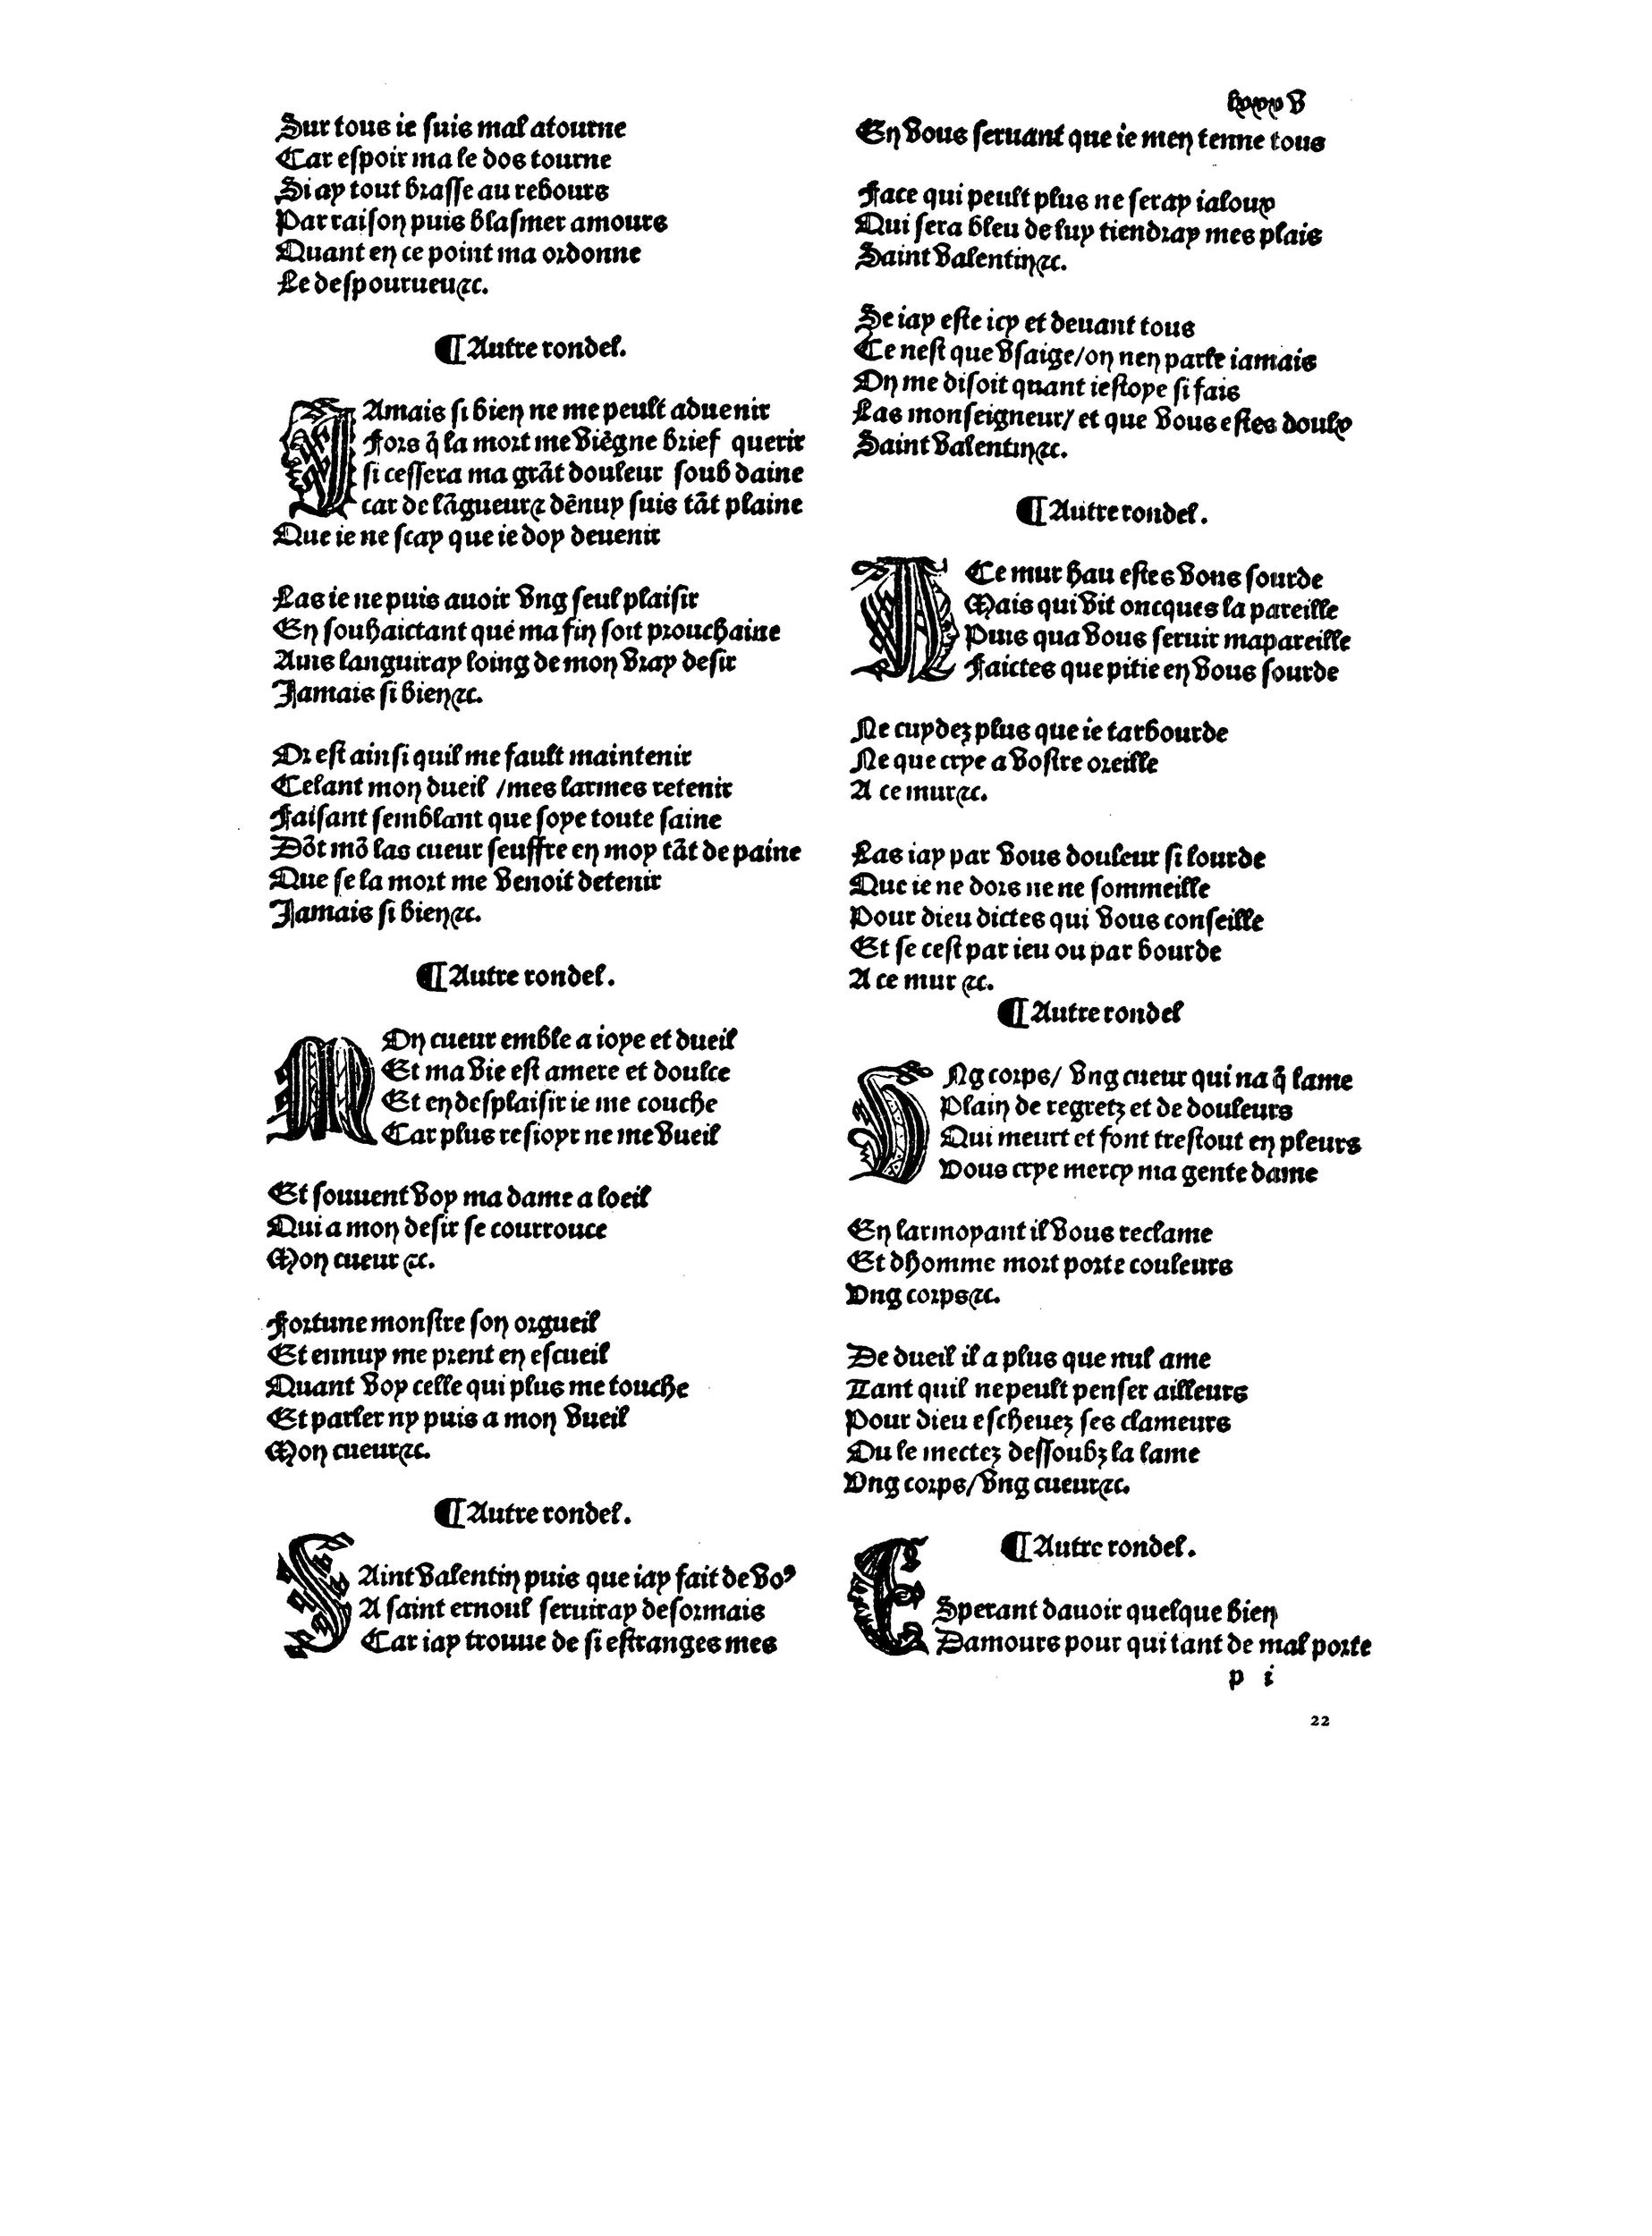 lxxxv
Sur tous ie suis mal atourne
Car espoir ma le dos tourne
Si ay tout brasse au rebours
Par raison puis blasmer amours
Quant en ce point ma ordonne
Le despourueu⁊c.
¶Autre rondel.
IAmais si bien ne me peult aduenir
Fors q̃ la mort me viẽgne brief querir
si cessera ma grãt douleur soub daine
car de lãgueur⁊ dẽnuy suis tãt plaine
Que ie ne scay que ie doy deuenir
Las ie ne puis auoir vng seul plaisir
En souhaictant que ma fin soit prouchaine
Ains languiray loing de mon vray desir
Jamais si bien⁊c.
Or est ainsi quil me fault maintenir
Celant mon dueil /mes larmes retenir
Faisant semblant que soye toute saine
Dõt mõ las cueur seuffre en moy tãt de paine
Que se la mort me venoit detenir
Jamais si bien⁊c.
¶Autre rondel.
MOn cueur emble a ioye et dueil
Et ma vie est amere et doulce
Et en desplaisir ie me couche
Car plus resioyr ne me vueil
Et souuent voy ma dame a loeil
Qui a mon desir se courrouce
Mon cueur ⁊c.
Fortune monstre son orgueil
Et ennuy me prent en escueil
Quant voy celle qui plus me touche
Et parler ny puis a mon vueil
Mon cueur⁊c.
¶Autre rondel.
SAint valentin puis que iay fait de voꝰ
A saint ernoul seruiray desormais
Car iay trouue de si estranges mes
En vous seruant que ie men tenne tous
Face qui peult plus ne seray ialoux
Qui sera bleu de luy tiendray mes plais
Saint valentin⁊c.
Se iay este icy et deuant tous
Ce nest que vsaige/on nen parle iamais
On me disoit quant iestoye si fais
Las monseigneur/ et que vous estes doulx
Saint valentin⁊c.
¶Autre rondel.
A Ce mur hau estes vous sourde
Mais qui vit oncques la pareille
Puis qua vous seruir mapareille
Faictes que pitie en vous sourde
Ne cuydez plus que ie tarbourde
Ne que crye a vostre oreille
A ce mur⁊c.
Las iay par vous douleur si lourde
Que ie ne dors ne ne sommeille
Pour dieu dictes qui vous conseille
Et se cest par ieu ou par bourde
A ce mur ⁊c.
¶Autre rondel
VNg corps/ vng cueur qui na q̃ lame
Plain de regretz et de douleurs
Qui meurt et font trestout en pleurs
Vous crye mercy ma gente dame
En larmoyant il vous reclame
Et dhomme mort porte couleurs
Vng corps⁊c.
De dueil il a plus que nul ame
Tant quil ne peult penser ailleurs
Pour dieu escheuez ses clameurs
Ou le mectez dessoubz la lame
Vng corps/vng cueur⁊c.
¶Autre rondel.
ESperant dauoir quelque bien
Damours pour qui tant de mal porte
p i
22